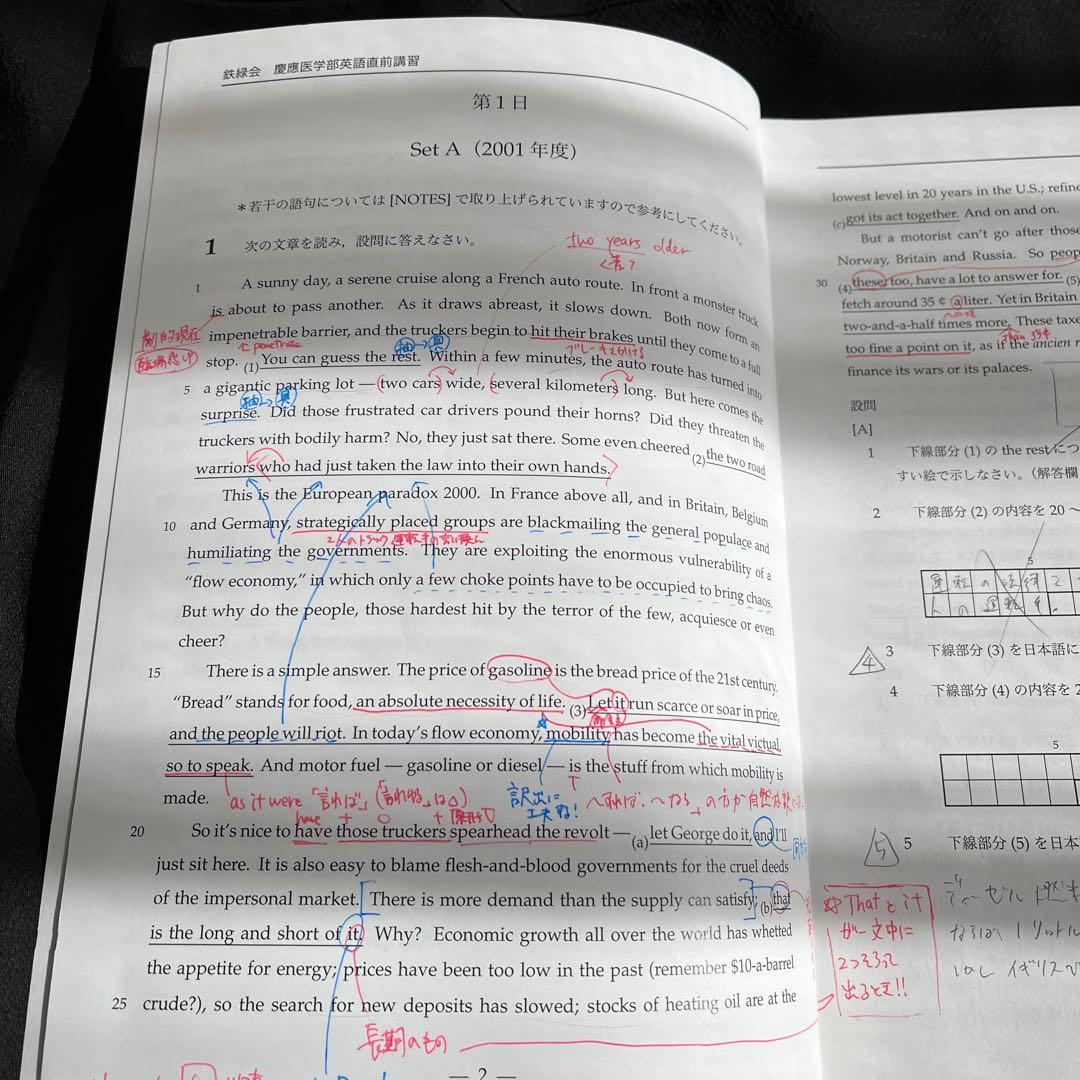 鉄緑会 慶應医学部英語直前講習
第1日
Set A (2001 年度)
*若干の語句については [NOTES] で取り上げられていますので参考にしてください。
1 次の文章を読み,設問に答えなさい。
two years older
1 A sunny day, a serene cruise along a French auto route. In front a monster truck
is about to pass another. As it draws abreast, it slows down. Both now form an
impenetrable barrier, and the truckers begin to hit their brakes until they come to a full
劇的現在
臨場感UP
penetrate
抽→具
ブレーキをかける
stop. (1)You can guess the rest. Within a few minutes, the auto route has turned into
5 a gigantic parking lot — (two cars) wide, (several kilometers) long. But here comes the
抽→具
surprise. Did those frustrated car drivers pound their horns? Did they threaten the
truckers with bodily harm? No, they just sat there. Some even cheered (2)the two road
warriors who had just taken the law into their own hands.
This is the European paradox 2000. In France above all, and in Britain, Belgium
10 and Germany, strategically placed groups are blackmailing the general populace and
2人のトラック運転手の言い換え
humiliating the governments. They are exploiting the enormous vulnerability of a
“flow economy,” in which only a few choke points have to be occupied to bring chaos.
But why do the people, those hardest hit by the terror of the few, acquiesce or even
cheer?
15 There is a simple answer. The price of gasoline is the bread price of the 21st century.
“Bread” stands for food, an absolute necessity of life. (3)Let it run scarce or soar in price,
and the people will riot. In today's flow economy, mobility has become the vital victual,
so to speak. And motor fuel — gasoline or diesel — is the stuff from which mobility is
made.
as it were 「言わば」
訳出に
工夫ね!
have + O +
20 So it's nice to have those truckers spearhead the revolt — (a)let George do it, and I'll
just sit here. It is also easy to blame flesh-and-blood governments for the cruel deeds
of the impersonal market. [There is more demand than the supply can satisfy]; (b)that
is the long and short of it. Why? Economic growth all over the world has whetted
the appetite for energy; prices have been too low in the past (remember $10-a-barrel
25 crude?), so the search for new deposits has slowed; stocks of heating oil are at the
長期のもの
— 2 —
lowest level in 20 years in the U.S.; refine
(c)got its act together. And on and on.
But a motorist can't go after those
Norway, Britain and Russia. So peop
30 (4)these, too, have a lot to answer for. (5)
fetch around 35 ¢ a liter. Yet in Britain
two-and-a-half times more. These taxe
than 35¢
too fine a point on it, as if the ancien r
finance its wars or its palaces.
設問
[A]
1 下線部分 (1) の the rest につ
すい絵で示しなさい。(解答欄
2 下線部分 (2) の内容を 20 〜
5
運転の法律で
人の運転手。
4
3 下線部分 (3) を日本語に
4 下線部分 (4) の内容を 2
5
5
5 下線部分 (5) を日本
ディーゼル燃
なら1リットル
しかしイギリスで
☆ Thatとit
が一文中に
2つそろって
出るとき!!